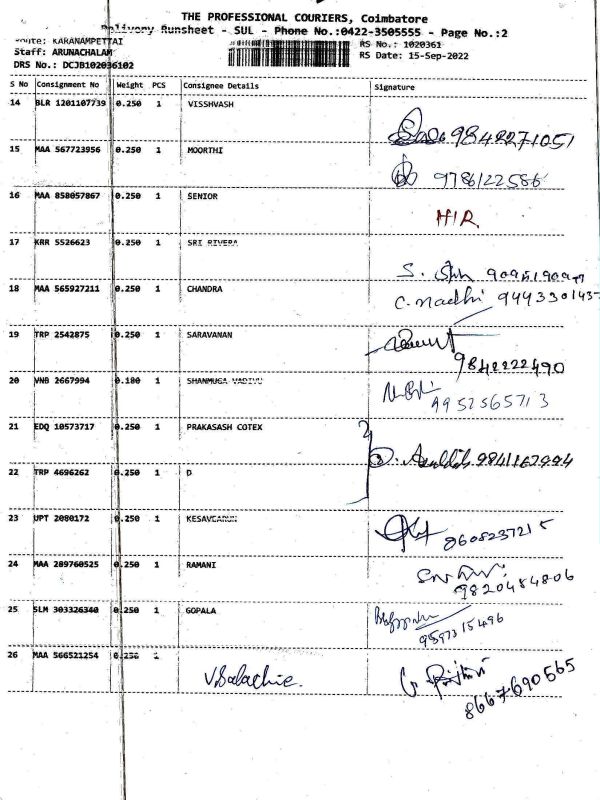 THE PROFESSIONAL COURIERS, Coimbatore
Delivery Runsheet - SUL - Phone No.:0422-3505555 - Page No.:2
Route: KARANAMPETTAI
RS No.: 1020361
Staff: ARUNACHALAM
RS Date: 15-Sep-2022
DRS No.: DCJB102036102
S No Consignment No Weight PCS Consignee Details Signature
14 BLR 1201107739 0.250 1 VISSHVASH
9842271051
15 MAA 567723956 0.250 1 MOORTHI
9786122586
16 MAA 858057867 0.250 1 SENIOR
HIR
17 KRR 5526623 0.250 1 SRI RIVERA
S.
18 MAA 565927211 0.250 1 CHANDRA
C. nadhi 9443301437
19 TRP 2542875 0.250 1 SARAVANAN
9842222490
20 VNB 2667994 0.180 1 SHANMUGA VADIVU
9952565713
21 EDQ 10573717 0.250 1 PRAKASASH COTEX
9841167994
22 TRP 4696262 0.250 1 D
23 UPT 2080172 0.250 1
8608237215
24 MAA 289760525 0.250 1 RAMANI
9820484806
25 SLM 303326340 0.250 1 GOPALA
9597315496
26 MAA 566521254 0.250 1
V. Balachie.
8667690565